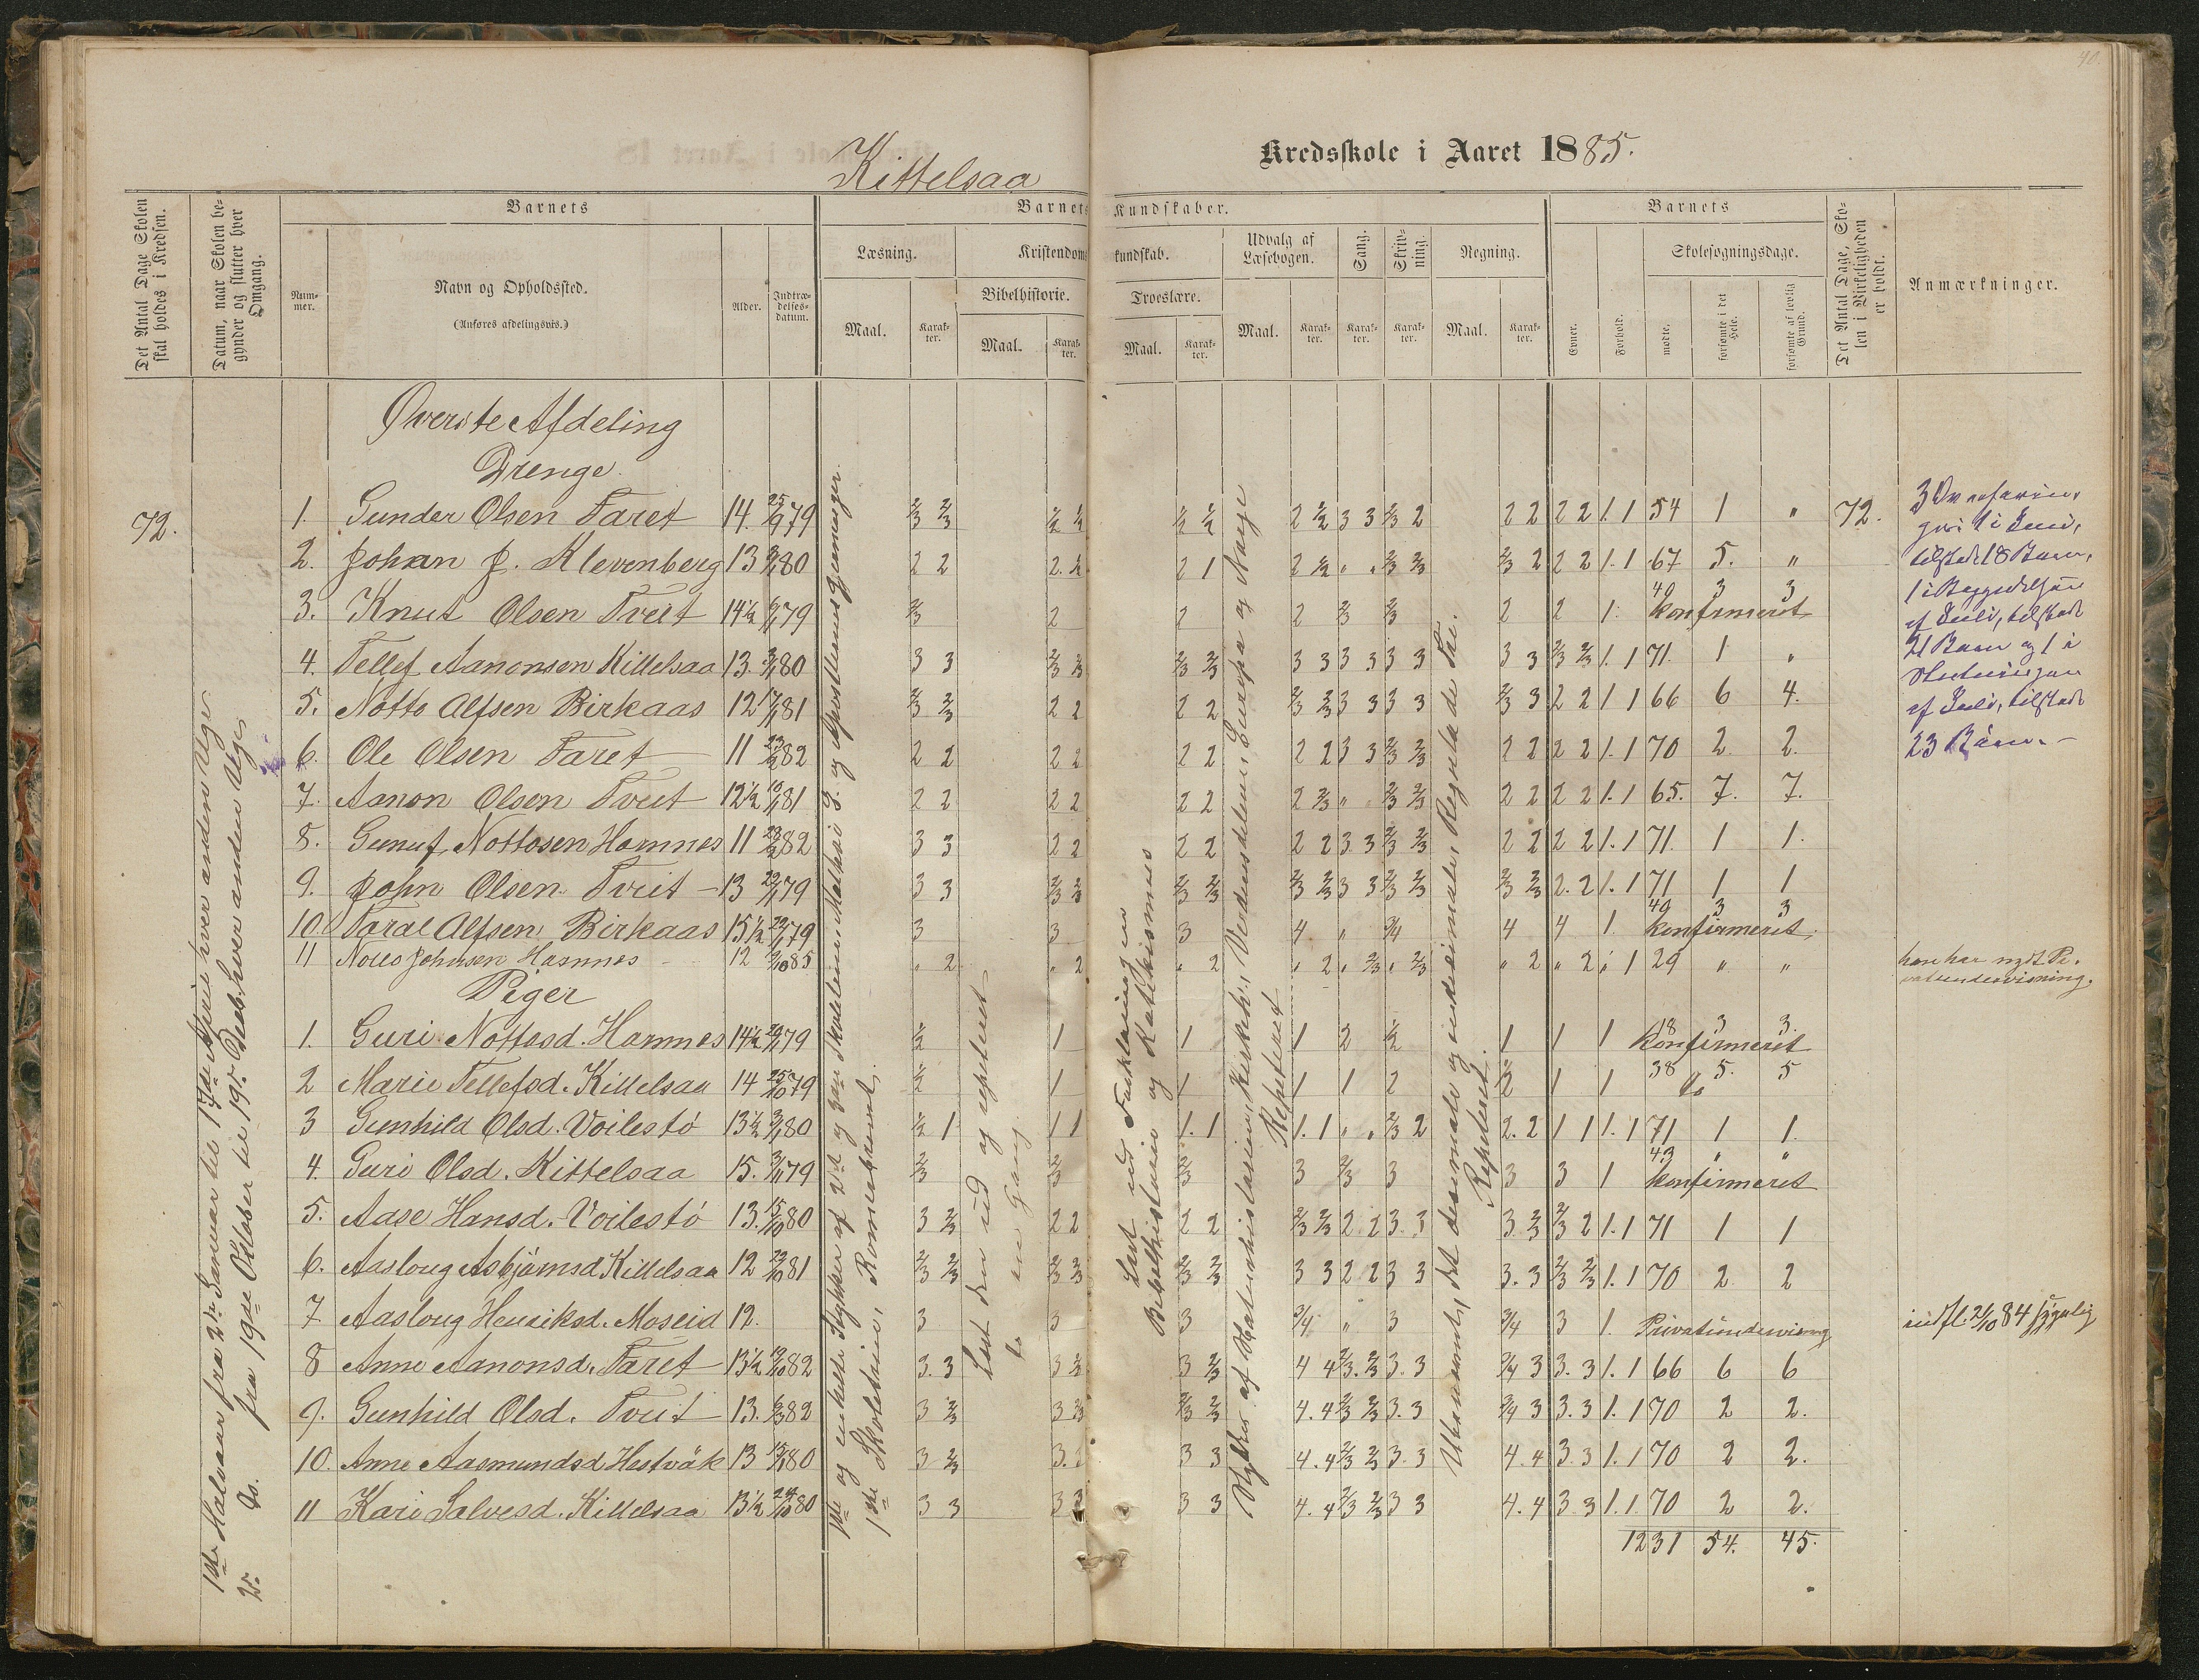 40.
Kittelsaa
Kredsskole i Aaret 1885.
Det Antal Dage Skolen skal holdes i Kredsen.
Datum, naar Skolen begynder og slutter hver Omgang.
Barnets
Nummer.
Navn og Opholdssted.
(Anføres afdelingsvis.)
Alder.
Indtrædelsesdatum.
Barnets Kundskaber.
Læsning.
Maal.
Karakter.
Kristendomskundskab.
Bibelhistorie.
Maal.
Karakter.
Troeslære.
Maal.
Karakter.
Udvalg af Læsebogen.
Maal.
Karakter.
Sang.
Karakter.
Skrivning.
Karakter.
Regning.
Maal.
Karakter.
Barnets
Evner.
Forhold.
Skolesøgningsdage.
mødte.
forsømte i det Hele.
forsømte af lovlig Grund.
Det Antal Dage, Skolen i Virkeligheden er holdt.
Anmærkninger.
Øverste Afdeling
Drenge
72.
1. Gunder Olsen Faret 14. 25/9 79 2/3 2/3 1/2 1/2 1/2 1/2 2 1/2 3 3 2/3 2 2 2 2 2 1. 1 54 1 " 72.
2. Johan J. Klevenberg 13 80 2 2 2. 1/2 2 1 2 1/2 " " 2/3 2/3 2/3 2 2 2 1. 1 67 5. "
3. Knut Olsen Tveit 14 1/2 79 2/3 2 2 2 2/3 2/3 2 2 1. 49 3 3 konfirmeret
4. Tellef Aanonsen Kittelsaa 13. 80 3 3 2/3 2/3 2/3 2/3 3 3 3 3 3 3 3 3 2/3 2/3 1. 1 71. 1 "
5. Notto Alfsen Birkaas 12 81 2/3 2/3 2 2 2 2 2/3 2/3 3 3 3 3 2/3 3 2 2 1 1 66 6 4.
6. Ole Olsen Faret 11 82 2 2 2 2 2 2 2 2 3 3 2/3 2/3 2 2 2 2 1. 1 70 2 2.
7. Aanon Olsen Tveit 12 1/2 81 2 2 2 2 2 2 2 2/3 " 2/3 2/3 2 2 2 2 1. 1 65. 7. 7.
8. Gunuf Nottosen Hamnes 11 82 3 3 2 2 2 2 2 2 3. 3 2/3 2/3 2 2 2 2 1. 1 71. 1 1.
9. John Olsen Tveit 13 79 3 3 2/3 2/3 2/3 2/3 2/3 2/3 3 3 2/3 2/3 2/3 2/3 2. 2 1. 1 71 1 1
10. Taral Alfsen Birkaas 15 1/2 79 3 3 3 4 " 3/4 4 4 1. 49 3 3 konfirmeret.
11 Johnsen 12 85 " 2 " 2 " 2 " 2 " 2/3 " 2/3 " 2 " 2 " 1 29 " "
han har nydt Privatundervisning.
Piger
1. Guri Nottosd. Hamnes 14 1/2 79 1/2 1 1 1 2 1/2 1 1 1 18 3 3. konfirmeret
2 Marie Tellefsd. Kittelsaa 14 25/10 79 1/2 1 1 1 1 2 2 1 1 38 5. 5 do
3 Gunhild Olsd. Voilestö 13 1/2 80 1/2 1 1 1 1. 1 1. 1 " " 2/3 2 2. 2 1 1 1. 1 71 1 1.
4. Guri Olsd. Kittelsaa 15. 79 2/3 2/3 2/3 3 2/3 3 3 3 1 43 " " konfirmeret
5. Aase Hansd. Voilestö 13. 15/10 80 3 2/3 2 2 2 2 2/3 2/3 2. 2 3. 3 3. 2/3 2/3 2 1. 1 71 1 1
6. Aasloug Asbjørnsd Kittelsaa 12 81 2/3 2/3 2/3 2/3 2/3 2/3 3 3 2 2 3 3 3. 3 2/3 2/3 1. 1 70 2 2
7. Aasloug Henriksd. Moseid 12. 3 3 3 3/4 " 3 3/4 3 1. Privatundervisning
indfl. 2/10 84 sygelig
8 Anne Aanonsd. Faret 13 1/2 82 3. 3 3 2/3 3 2/3 4 4 2/3. 2/3 3. 3 3/4 3 3. 3 1. 1 66 6 6
9. Gunhild Olsd. Tveit 13. 82 3 2/3 3 2/3 2/3 2/3 4. 4 2/3 2/3 3. 3 3/4 3 3. 3 1. 1 70 2 2.
10. Anne Aasmundsd Hestvåk 13 80 3 2/3 3. 3 3 4. 4 2/3 2/3 3. 3 4. 4 3. 3 1. 1 70 2 2.
11 Kari Salvesd. Kittelsaa 13 1/2 24/10 80 3 3 3 3 3 4. 4 2/3 2/3 3 3 4. 4 3 3 1. 1. 70 2 2.
1231 54. 45.
1ste Halvaar fra 2den Januar til 17de hver anden Uge
2. do. fra 19de Oktober til 19. Decb. hver anden Uge
1ste og enkelte Stykker af 2det og 3die Skoletrin, Mathæi Ev. og Apostlernes Gjerninger.
1ste Skoletrin, Romerbrevet.
Læst den ud og repeteret
do en Gang
Læst ud Forklaringen
Bibelhistorie og Katekismus
Stykker af Naturhistorien, Kirkeh., Verdensdelene, Europa og Norge
Repeteret
Ubenævnt, det desimale og undesimale, Reguladetri.
Repeteret.
gen 1 i Juni,
tilstede 18 Børn,
1 i Begyndelsen
af Juli, tilstede
21 Børn og 1 i
Slutningen
af Juli, tilstede
23 Börn. –